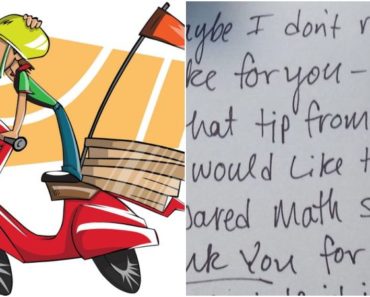 aybe I don't
ke for you -
hat tip from
would like t
ared Math s
nk You for